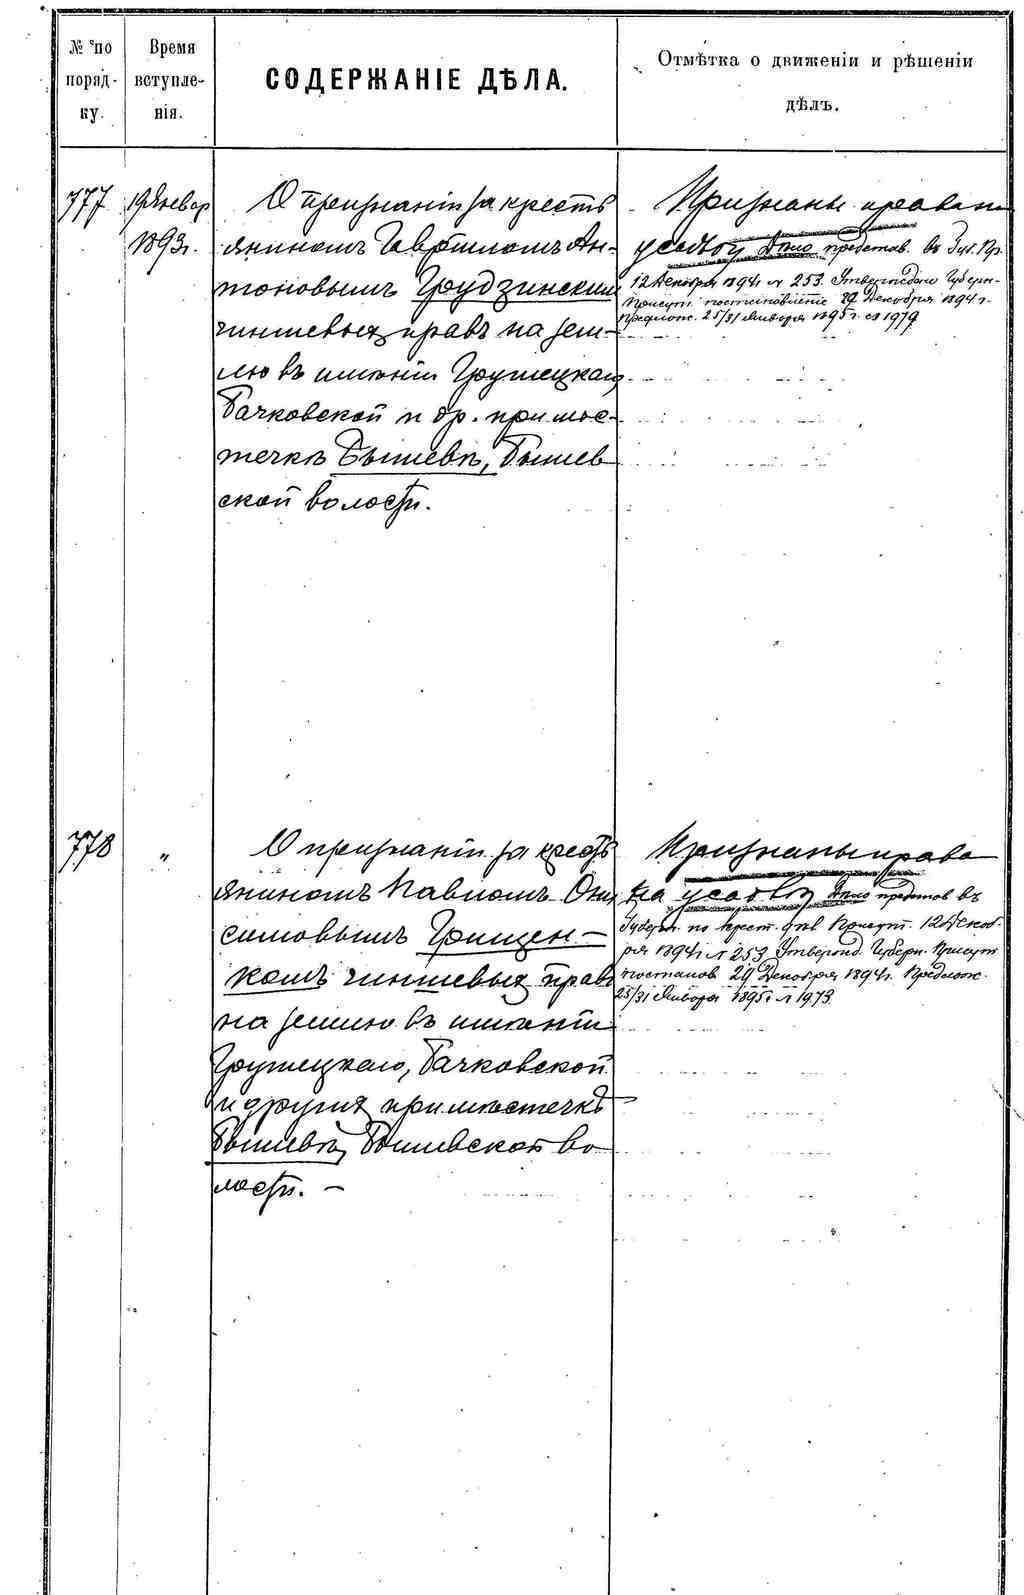 № по
поряд-
ку.
Время
вступле-
нія.
СОДЕРЖАНІЕ ДѢЛА.
Отмѣтка о движеніи и рѣшеніи
дѣлъ.
777
19 Январ
1893 г.
О признаніи за кресть
яниномъ Гавріиломъ Ан-
тоновымъ Грудзинскимъ
чиншевыхъ правъ на зем-
лю въ имѣніи Грушецкаго,
Бачковской и др. при мѣс-
течкѣ Бышевѣ, Бышев
ской волости.
Признаны права на
усадьбу Дѣло представ. въ Губ. Пр.
12 Декабря 1894 г. № 253. Утверждено Губерн.
Присут. постановленіе 29 Декабря 1894 г.
Предлож. 25/31 Января 1895 г. № 1979
778
"
О признаніи за кресть
яниномъ Павломъ Они
симовымъ Грищен-
комъ чиншевыхъ правъ
на землю въ имѣніи
Грушецкаго, Бачковской
и другихъ при мѣстечкѣ
Бышевѣ, Бышевской во
лости. –
Признаны права
на усадьбу Дѣло представ въ
Губерн. по крест. дѣл Присут. 12 Декаб-
ря 1894 г. № 253 Утвержд. Губерн. Присут
постанов 29 Декабря 1894 г. Предлож.
25/31 Января 1895 г. № 1973.